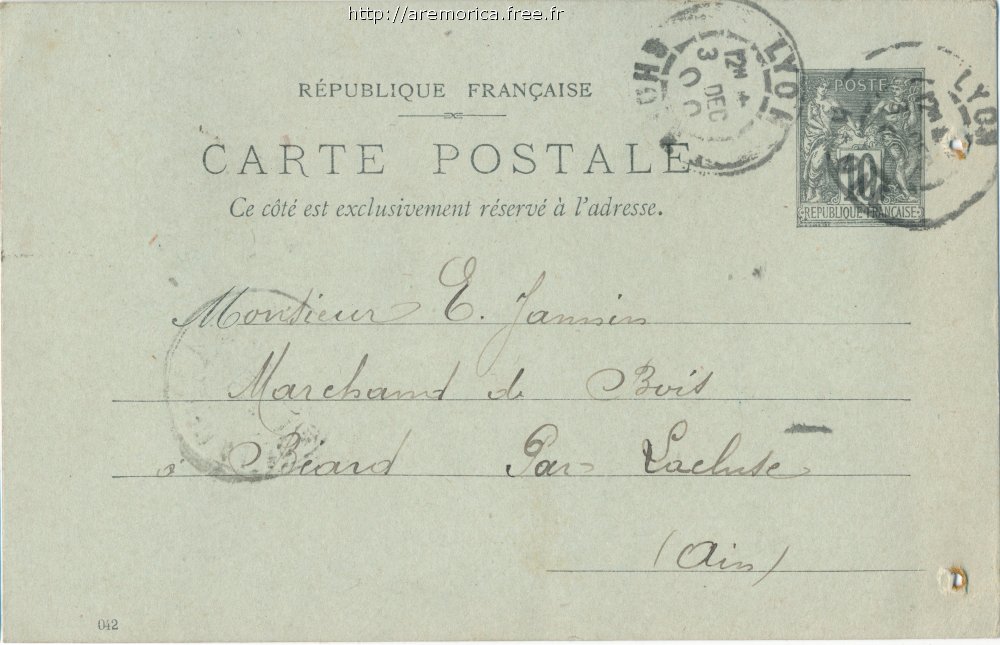 http://aremorica.free.fr
LYON
12M 4
3 DEC
00
LYON
RÉPUBLIQUE FRANÇAISE
POSTE
10
REPUBLIQUE FRANÇAISE
CARTE POSTALE
Ce côté est exclusivement réservé à l'adresse.
Monsieur E. Jannin
Marchand de Bois
à Béard Par Lacluse
(Ain)
042